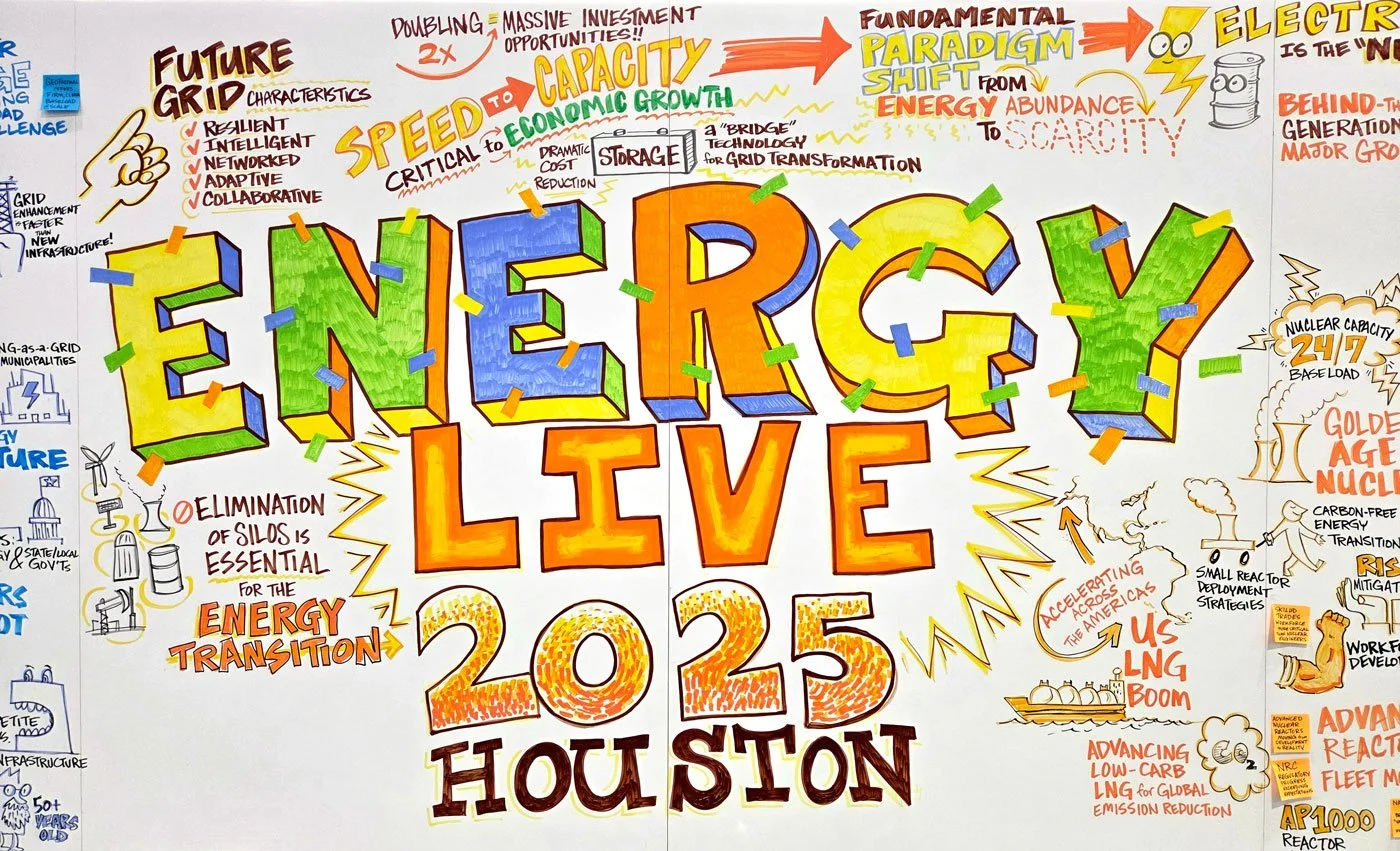 GEOTHERMAL
FUTURE
GRID CHARACTERISTICS
RESILIENT
INTELLIGENT
NETWORKED
ADAPTIVE
COLLABORATIVE
DOUBLING = MASSIVE INVESTMENT
2X OPPORTUNITIES!!
SPEED TO CAPACITY
CRITICAL to ECONOMIC GROWTH
DRAMATIC
COST
REDUCTION
STORAGE
a "BRIDGE"
TECHNOLOGY
for GRID TRANSFORMATION
FUNDAMENTAL
PARADIGM
SHIFT FROM
ENERGY ABUNDANCE
To SCARCITY
ELECTR
IS THE "N
BEHIND-TH
GENERATION
MAJOR GRO
GRID
ENHANCEMENT
is FASTER
THAN
NEW
INFRASTRUCTURE!
ENERGY
LIVE
2025
HOUSTON
NG-as-a-GRID
MUNICIPALITIES
GY
TURE
& STATE/LOCAL
GOV'TS
RS
OT
ETITE
NFRASTRUCTURE
50+
YEARS
OLD
ELIMINATION
OF SILOS IS
ESSENTIAL
FOR THE
ENERGY
TRANSITION
NUCLEAR CAPACITY
24/7
BASELOAD
GOLDE
AGE
NUCL
CARBON-FREE
ENERGY
TRANSITION
SMALL REACTOR
DEPLOYMENT
STRATEGIES
RIS
MITIGAT
ACCELERATING
ACROSS
THE AMERICAS
US
LNG
BOOM
SKILLED
TRADES
WORKFORCE
MORE CRITICAL
THAN NUCLEAR
ENGINEERS
WORKF
DEVELO
ADVANCING
LOW-CARB
LNG for GLOBAL
EMISSION REDUCTION
CO2
ADVANCED
NUCLEAR
REACTORS
MOVING from
DEVELOPMENT
to REALITY
ADVAN
REACT
FLEET M
NRC
REGULATORY
PROGRESS
EXCEEDING
EXPECTATIONS
AP1000
REACTOR